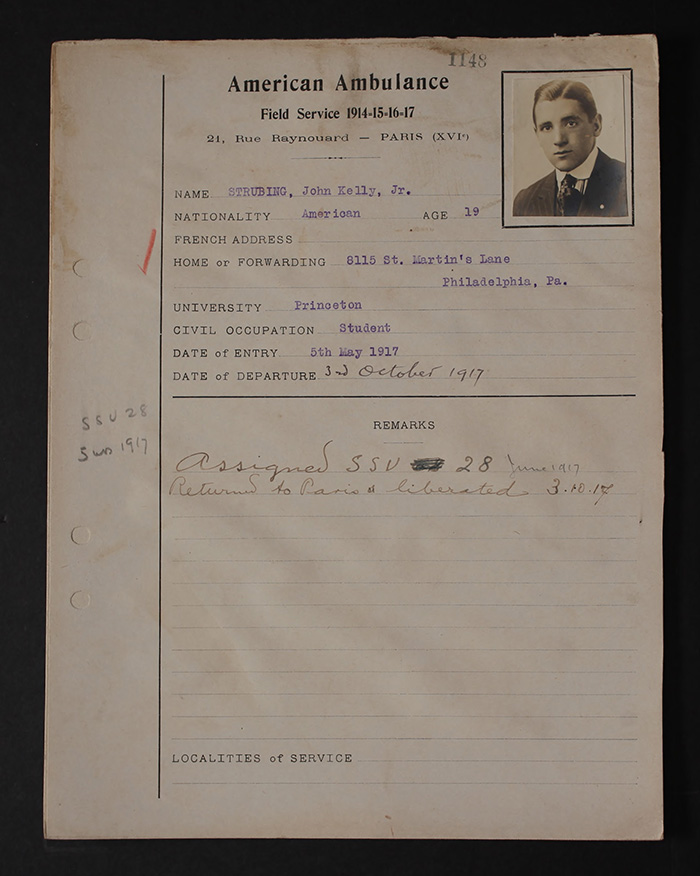 1148
American Ambulance
Field Service 1914-15-16-17
21, Rue Raynouard — PARIS (XVIe)
NAME STRUBING, John Kelly, Jr.
NATIONALITY American AGE 19
FRENCH ADDRESS
HOME or FORWARDING 8115 St. Martin's Lane
Philadelphia, Pa.
UNIVERSITY Princeton
CIVIL OCCUPATION Student
DATE of ENTRY 5th May 1917
DATE of DEPARTURE 3rd October 1917
REMARKS
SSU 28
1917
Assigned SSU 28 June 1917
Returned to Paris & liberated 3.10.17
LOCALITIES of SERVICE